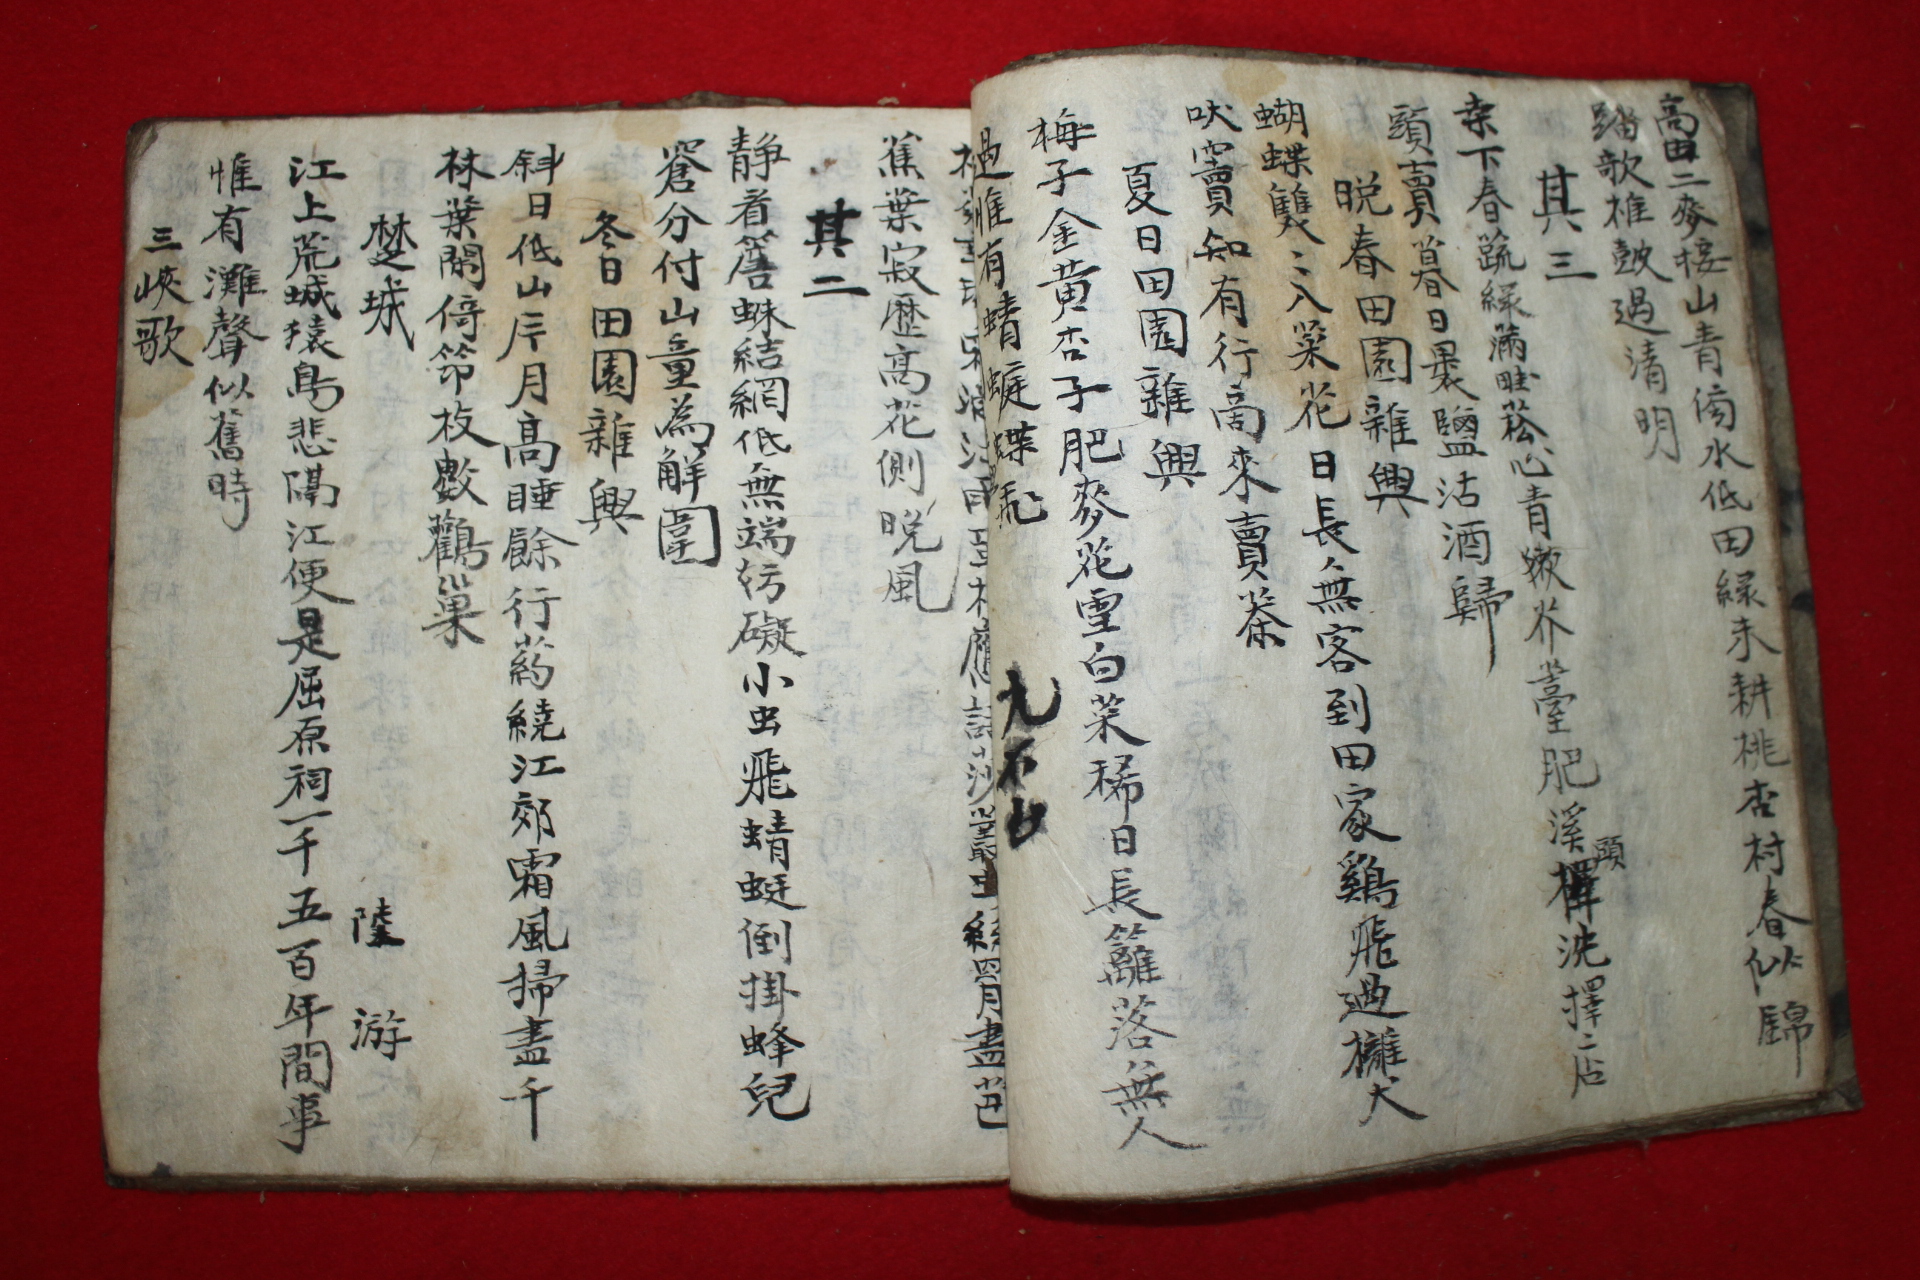 高田二麥接山青傍水低田綠未耕桃杏村春似錦
踏歌椎皷過清明
其三
桒下春蔬綠滿畦菘心青嫩芥薹肥溪頭洗擇二店
頭賣暮日裹鹽沽酒歸
晚春田園雜興
蝴蝶雙二入菜花日長無客到田家鷄飛過欄犬
吠竇知有行商來賣茶
夏日田園雜興
梅子金黃杏子肥麥花雪白菜稀日長籬落無人
過惟有蜻蜓蝶飛
九不山
蕉葉寂歷高花側晚風
其二
靜看簷蛛結網低無端妨礙小虫飛蜻蜓倒掛蜂兒
窘分付山童為解圍
冬日田園雜興
斜日低山片月高睡餘行葯繞江郊霜風掃盡千
林葉閑倚筇枝數鸛巢
楚城
陸游
江上荒城猿鳥悲隔江便是屈原祠一千五百年間事
惟有灘聲似舊時
三峽歌